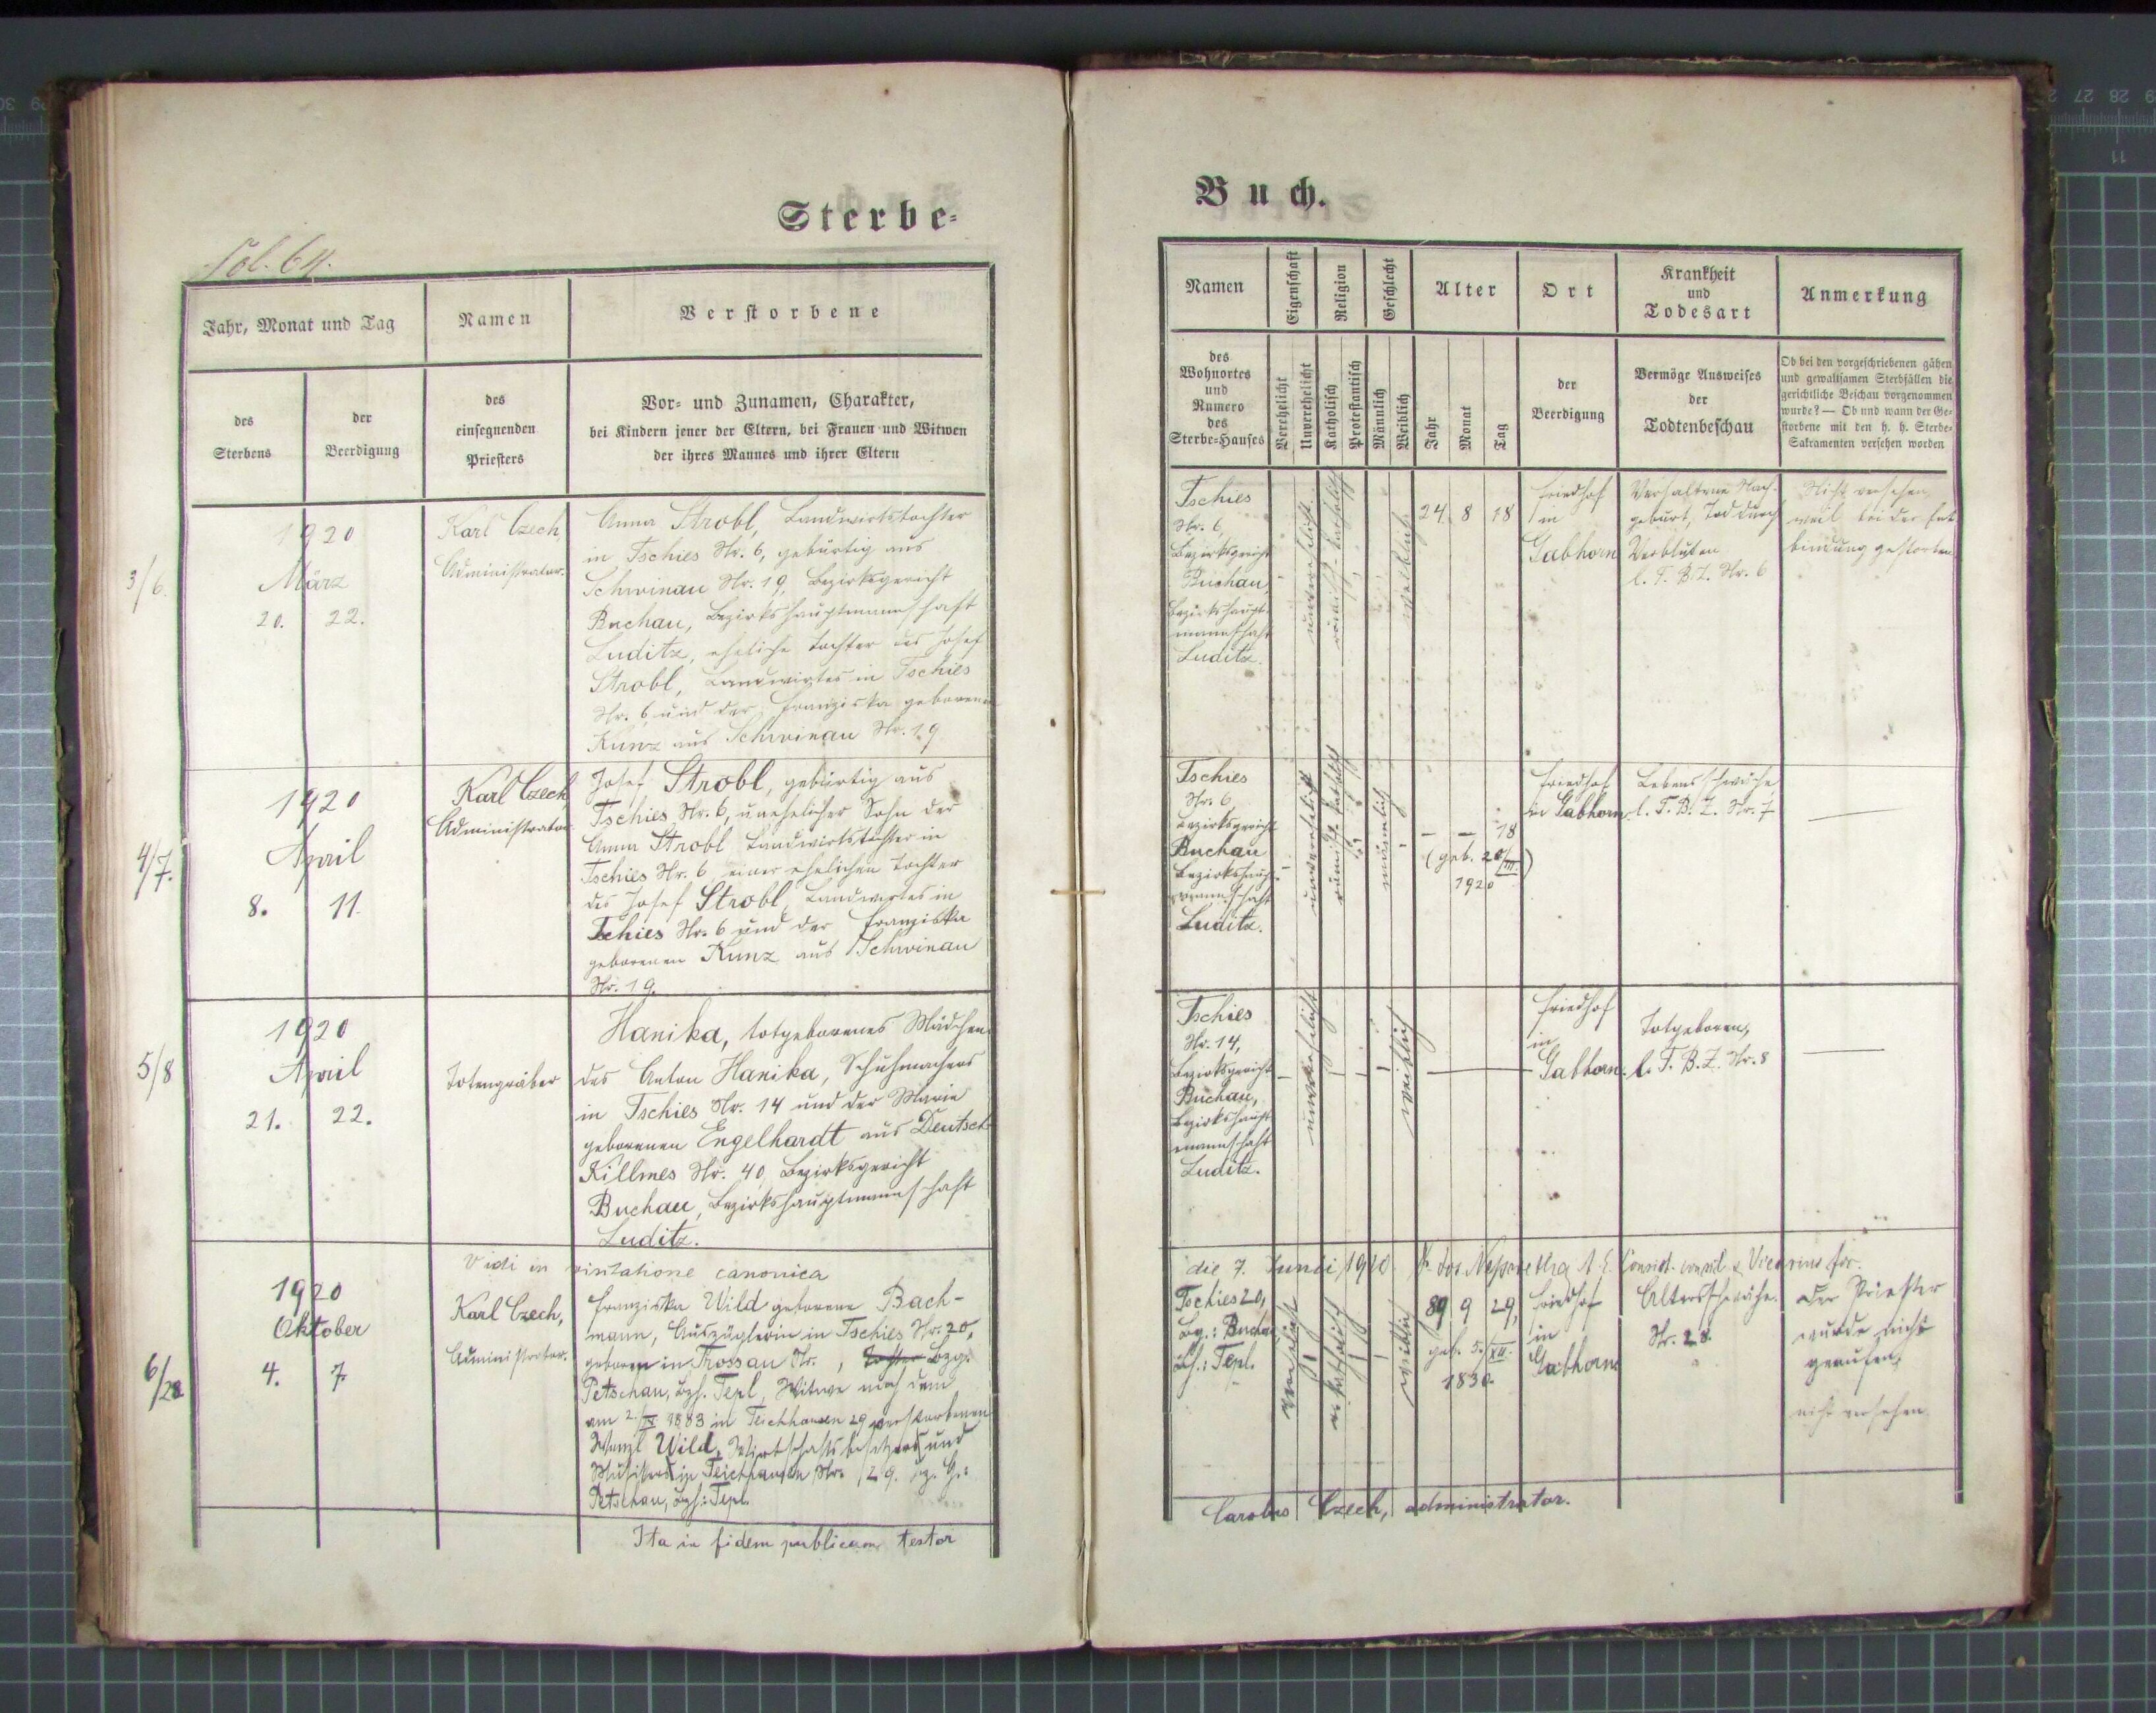 Sterbe-
Fol. 64.
Jahr, Monat und Tag
Namen
Verstorbene
des
Sterbens
der
Beerdigung
des
einsegnenden
Priesters
Vor- und Zunamen, Charakter,
bei Kindern jener der Eltern, bei Frauen und Witwen
der ihres Mannes und ihrer Eltern
3/6.
1920
März
20. 22.
Karl Czech,
Administrator.
Anna Strobl, Landwirtstochter
in Tschies Nr. 6, gebürtig aus
Schwinau Nr. 19, Bezirksgericht
Buchau, Bezirkshauptmannschaft
Luditz, eheliche Tochter des Josef
Strobl, Landwirtes in Tschies
Nr. 6 und der Franziska geborenen
Kunz aus Schwinau Nr. 19
4/7.
1920
April
8. 11.
Karl Czech
Administrator
Josef Strobl, gebürtig aus
Tschies Nr. 6, unehelicher Sohn der
Anna Strobl Landwirtstochter in
Tschies Nr. 6, einer ehelichen Tochter
des Josef Strobl, Landwirtes in
Tschies Nr. 6 und der Franziska
geborenen Kunz aus Schwinau
Nr. 19.
5/8
1920
April
21. 22.
Totengräber
Hanika, totgeborenes Mädchen
des Anton Hanika, Schuhmachers
in Tschies Nr. 14 und der Marie
geborenen Engelhardt aus Deutsch
Killmes Nr. 40, Bezirksgericht
Buchau, Bezirkshauptmannschaft
Luditz.
Vidi in visitatione canonica
6/28
1920
Oktober
4. 7.
Karl Czech,
Administrator.
Franziska Wild geborene Bach-
mann, Auszüglerin in Tschies Nr. 20,
geboren in Trossau Nr. , Tochter Bzg.
Petschau, Bzh. Tepl, Witwe nach dem
am 2./IV 1883 in Teichhäusen 29 verstorbenen
Wenzl Wild, Wirtschaftsbesitzers und
Musikers in Teichhäusen Nr. 29. Bz. G.:
Petschau, Bzh: Tepl.
Ita in fidem publicam testor
Buch.
Namen
Eigenschaft
Religion
Geschlecht
Alter
Ort
Krankheit
und
Todesart
Anmerkung
des
Wohnortes
und
Numero
des
Sterbe-Hauses
Verehelicht
Unverehelicht
Katholisch
Protestantisch
Männlich
Weiblich
Jahr
Monat
Tag
der
Beerdigung
Vermöge Ausweises
der
Todtenbeschau
Ob bei den vorgeschriebenen gähen
und gewaltsamen Sterbfällen die
gerichtliche Beschau vorgenommen
wurde? — Ob und wann der Ge-
storbene mit den h. h. Sterbe-
Sakramenten versehen worden
Tschies
Nr. 6
Bezirksgericht
Buchau,
Bezirkshaupt
mannschaft
Luditz.
unverehelicht
römisch-katholisch
weiblich
24 8 18
Friedhof
in
Gabhorn
Verhaltene Nach-
geburt, Tod durch
Verbluten
l. T. B. Z. Nr. 6
Nicht versehen,
weil bei der Ent
bindung gestorben
Tschies
Nr. 6
Bezirksgericht
Buchau
Bezirkshaupt-
mannschaft
Luditz.
unverehelicht
römisch-katholisch
männlich
— — 18
(geb. 20/III.)
1920
Friedhof
in Gabhorn
Lebensschwäche
l. T. B. Z. Nr. 7
—
Tschies
Nr. 14,
Bezirksgericht
Buchau,
Bezirkshaupt
mannschaft
Luditz.
unverehelicht
weiblich
Friedhof
in
Gabhorn.
Totgeboren,
l. T. B. Z. Nr. 8
—
die 7. Junii 1920 Consist. consil. & Vicarius for.
Tschies 20,
Bg.: Buchau
Bh.: Tepl.
verehelicht
r. katholisch
weiblich
89 9 29,
geb. 5./XII.
1830.
Friedhof
in
Gabhorn
Altersschwäche.
Nr. 28.
Der Priester
wurde nicht
gerufen,
nicht versehen
Carolus Czech, administrator.